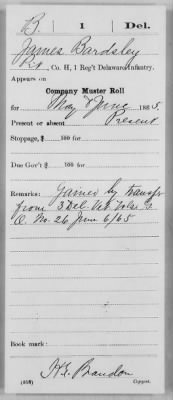 B. 1 Del.
James Bardsley
Pvt, Co. H, 1 Reg't Delaware Infantry.
Appears on
Company Muster Roll
for May & June, 1865.
Present or absent Present
Stoppage, $ 100 for
Due Gov't $ 100 for
Remarks: Joined by transfer
from 3 Del. Vet. Vols. S.
O. No. 26 June 6/65
Book mark:
H.E. Brandon
(358) Copyist.